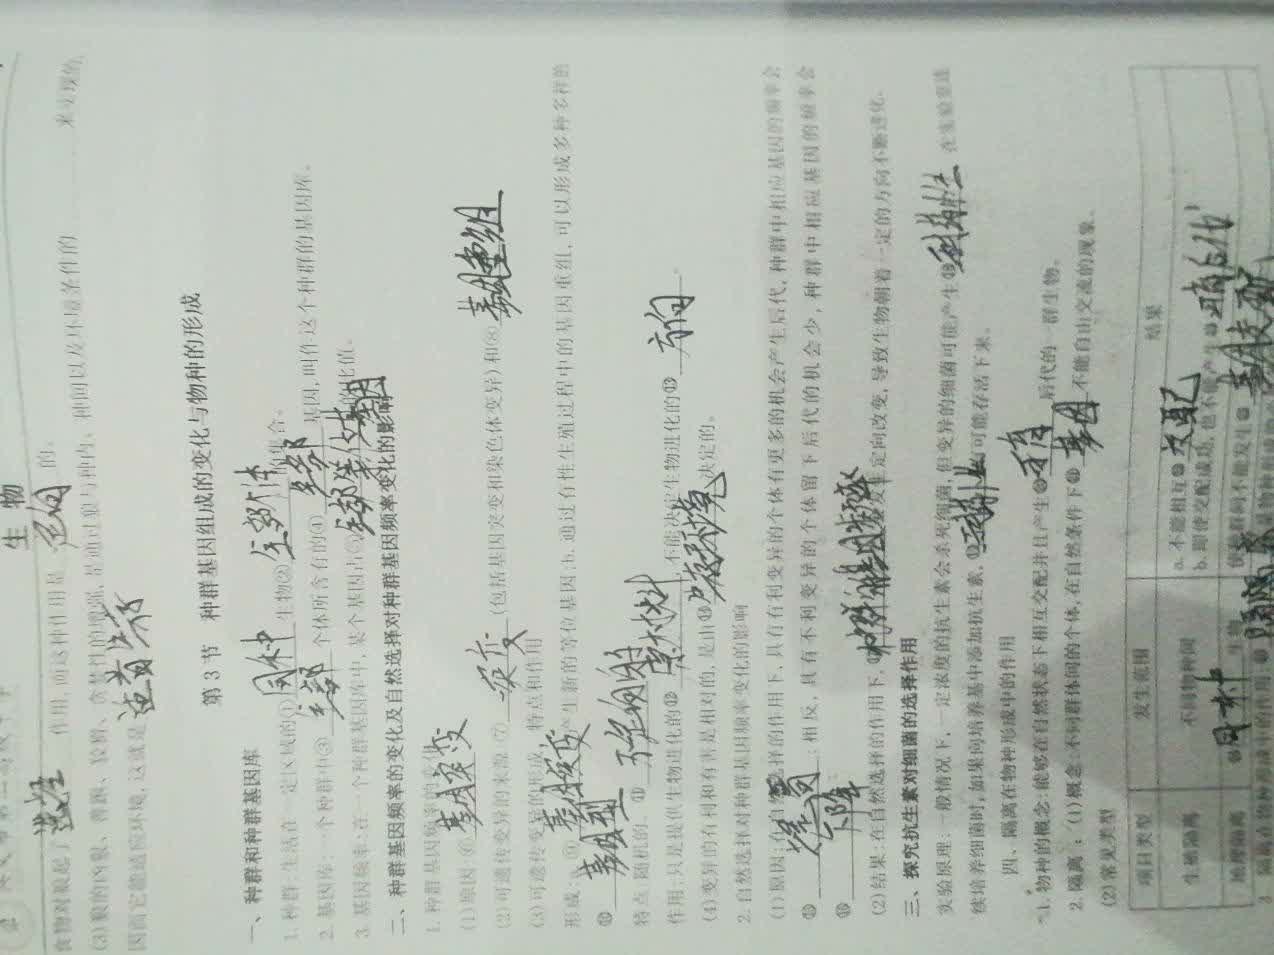 生 物
食物对狼起了 选择 作用,而这种作用是 定向 的。
(3)狼的凶狠、狡猾、灵敏、贪婪性的增强,是通过狼与种内、种间以及环境条件的 来实现的,
因而它能适应环境,这就是
第3节 种群基因组成的变化与物种的形成
一、种群和种群基因库
1.种群:生活在一定区域的① 同种 生物② 全部个体 的集合。
2.基因库:一个种群中③ 全部 个体所含有的④ 全部 基因,叫作这个种群的基因库。
3.基因频率:在一个种群基因库中,某个基因占⑤ 全部等位基因 的比值。
二、种群基因频率的变化及自然选择对种群基因频率变化的影响
1.种群基因频率的变化
(1)原因:⑥ 基因突变
(2)可遗传变异的来源:⑦ 突变 (包括基因突变和染色体变异)和⑧ 基因重组
(3)可遗传变异的形成、特点和作用
形成:a.⑨ 基因突变 产生新的等位基因;b.通过有性生殖过程中的基因重组,可以形成多种多样的
⑩ 基因型
特点:随机的、⑪ 不定向的
作用:只是提供生物进化的⑫ 原材料 ,不能决定生物进化的⑬ 方向 。
(4)变异的有利和有害是相对的,是由⑭ 生存环境 决定的。
2.自然选择对种群基因频率变化的影响
(1)原因:在自然选择的作用下,具有有利变异的个体有更多的机会产生后代,种群中相应基因的频率会
⑮ 提高 ;相反,具有不利变异的个体留下后代的机会少,种群中相应基因的频率会
⑯ 下降 。
(2)结果:在自然选择的作用下,⑰ 种群的基因频率 会发生定向改变,导致生物朝着一定的方向不断进化。
三、探究抗生素对细菌的选择作用
实验原理:一般情况下,一定浓度的抗生素会杀死细菌,但变异的细菌可能产生⑱ 耐药性 。在实验室连
续培养细菌时,如果向培养基中添加抗生素,⑲ 耐药性 菌可能存活下来。
四、隔离在物种形成中的作用
1.物种的概念:能够在自然状态下相互交配并且产生⑳ 可育 后代的一群生物。
2.隔离:(1)概念:不同群体间的个体,在自然条件下㉑ 基因 不能自由交流的现象。
(2)常见类型
项目类型 发生范围 结果
生殖隔离 不同物种间 a.不能相互 交配
b.即使交配成功,也不能产生 可育后代
地理隔离 同种 生物 使种群间不能发生 基因交流